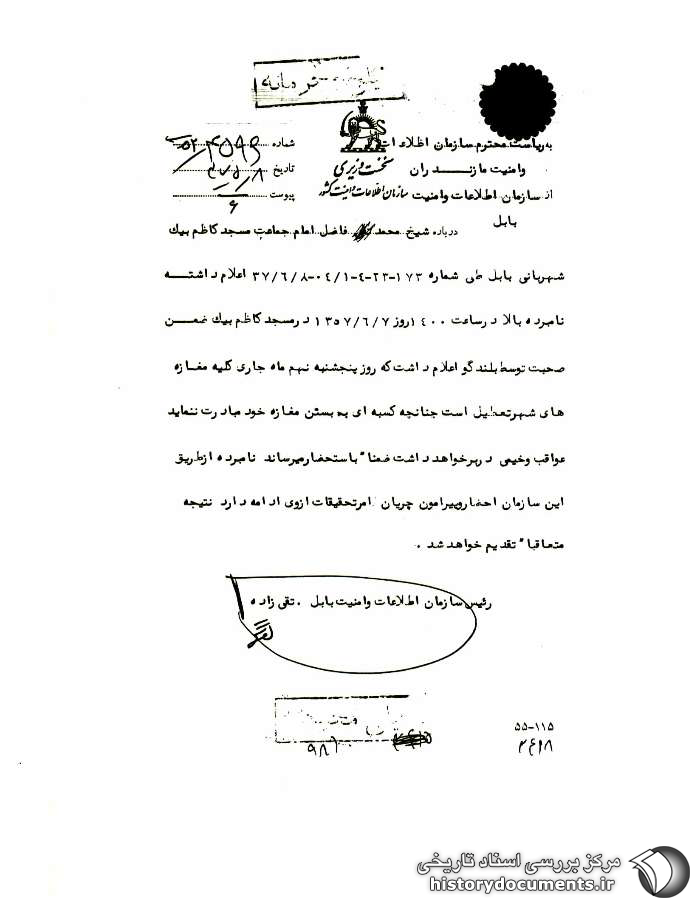 خیلی محرمانه
به ریاست محترم سازمان اطلاعات
وامنیت مازنــدران
از سازمان اطلاعات وامنیت
بابل
نخست وزیری
سازمان اطلاعات و امنیت کشور
شماره
تاریخ
پیوست
درباره شیخ محمد فاضل امام جماعت مسجد کاظم بیك
شهربانی بابل طی شماره ۱۷۳-۲۳-۴-۰۴/۱-۳۷/۶/۸ اعلام داشتــه
نامبرده بالا درساعت ۱۴۰۰ روز ۱۳۵۷/۶/۷ درمسجد کاظم بیك ضمــن
صحبت توسط بلندگو اعلام داشت که روز پنجشنبه نهم ماه جاری کلیه مغازه
های شهرتعطیل است چنانچه کسبه ای به بستن مغازه خود مبادرت ننماید
عواقب وخیمی دربرخواهد داشت ضمنا" باستحضارمیرساند نامبرده ازطریق
این سازمان احضاروپیرامون جریان امرتحقیقات ازوی ادامه دارد نتیجه
متعاقبا" تقدیم خواهد شد .
رئیس سازمان اطلاعات وامنیت بابل . تقی زاده
۵۵-۱۱۵
مرکز بررسی اسناد تاریخی
historydocuments.ir